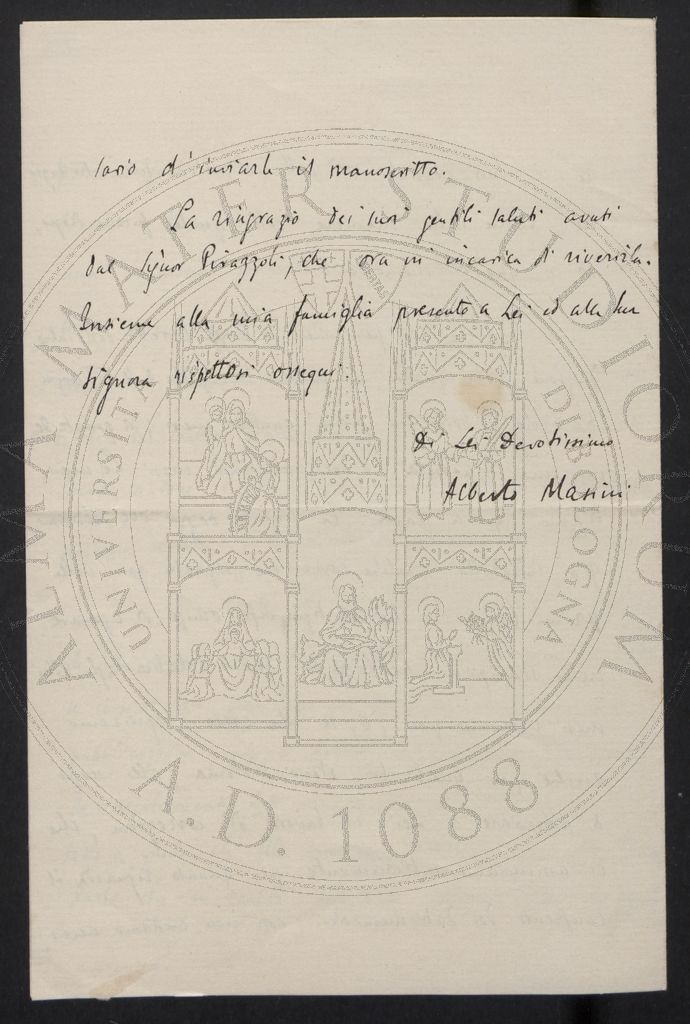 d'inviarle il manoscritto.
La ringrazio dei suoi gentili saluti avuti
dal Signor Pirazzoli, che ora mi incarica di riverirla.
Insieme alla mia famiglia presento a Lei ed alla sua
Signora rispettosi ossequi.
Di Lei Devotissimo
Alberto Masini
ALMA MATER STUDIORUM
UNIVERSITÀ DI BOLOGNA
A.D. 1088